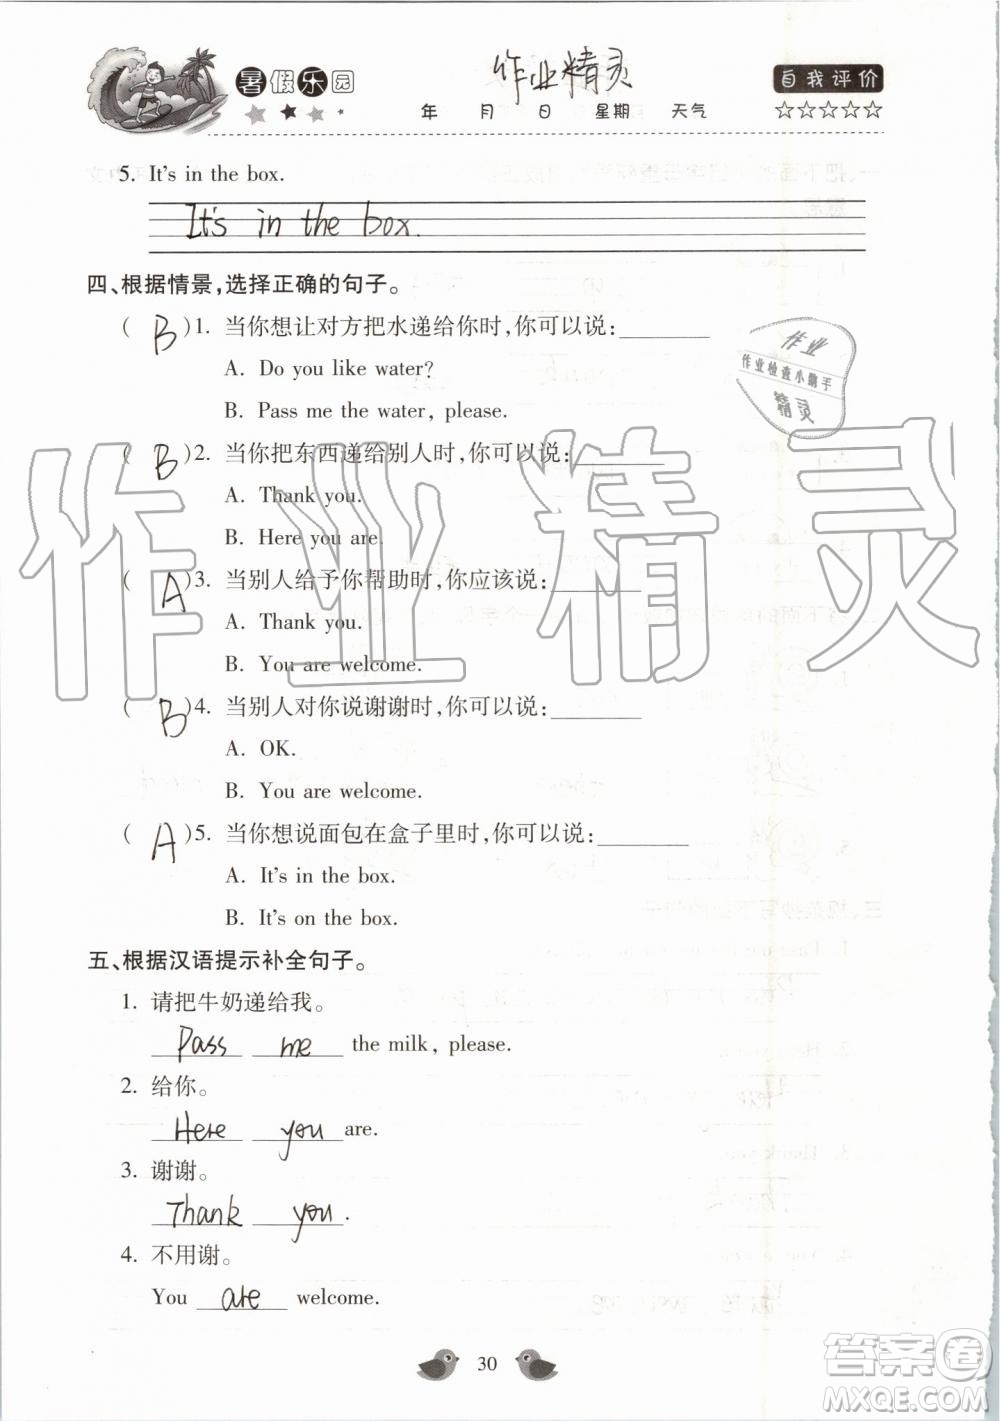 暑假乐园
作业精灵
年 月 日 星期 天气
自我评价
☆☆☆☆☆
5. It's in the box.
It's in the box.
四、根据情景,选择正确的句子。
( B )1. 当你想让对方把水递给你时,你可以说:________
A. Do you like water?
B. Pass me the water, please.
作业
作业检查小帮手
精灵
( B )2. 当你把东西递给别人时,你可以说:________
A. Thank you.
B. Here you are.
作业精灵
( A )3. 当别人给予你帮助时,你应该说:________
A. Thank you.
B. You are welcome.
( B )4. 当别人对你说谢谢时,你可以说:________
A. OK.
B. You are welcome.
( A )5. 当你想说面包在盒子里时,你可以说:________
A. It's in the box.
B. It's on the box.
五、根据汉语提示补全句子。
1. 请把牛奶递给我。
Pass me the milk, please.
2. 给你。
Here you are.
3. 谢谢。
Thank you.
4. 不用谢。
You are welcome.
30
答案卷
MXQE.COM